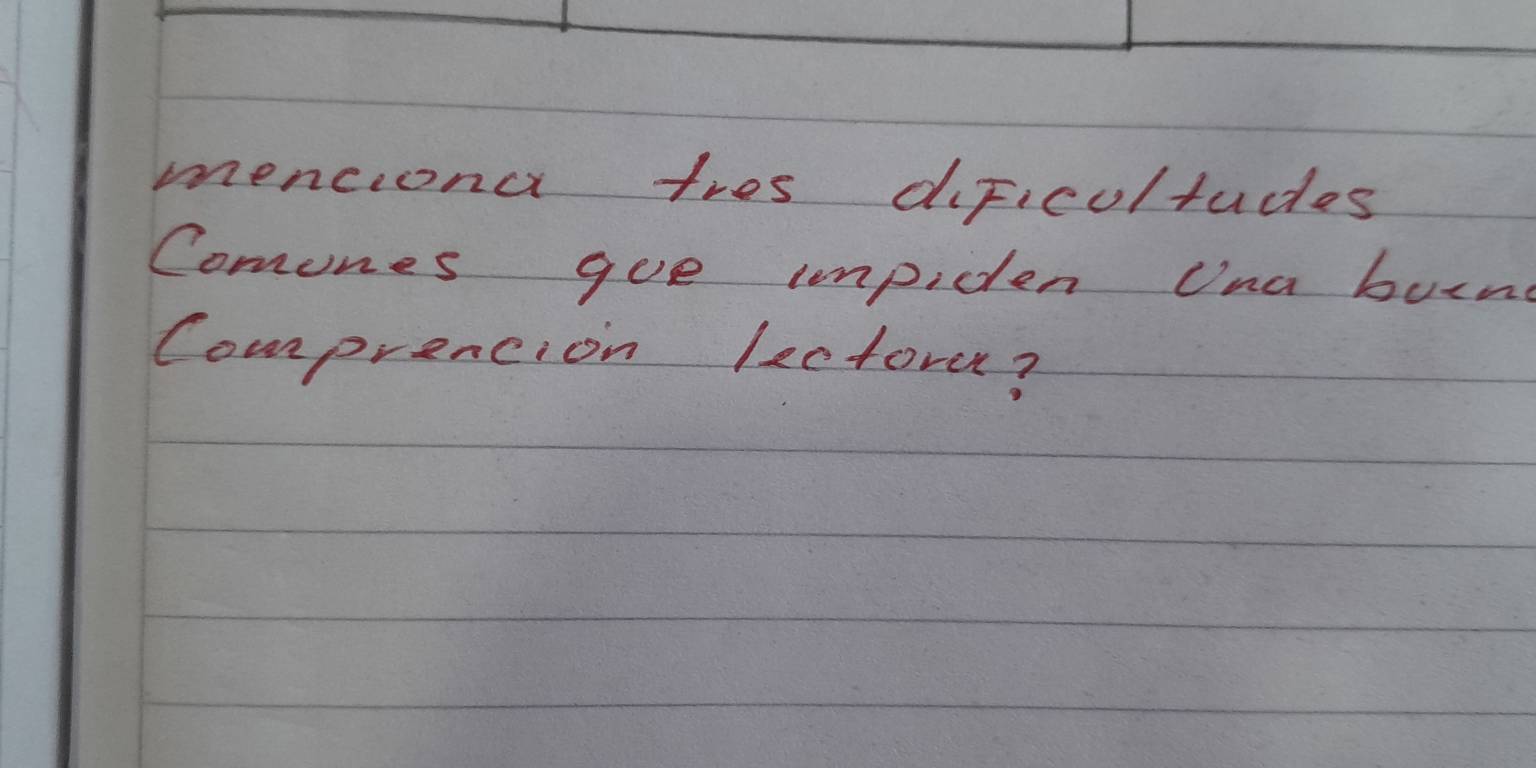 menciona tres dificultades
Comunes que impiden Una buena
Comprención lectora?